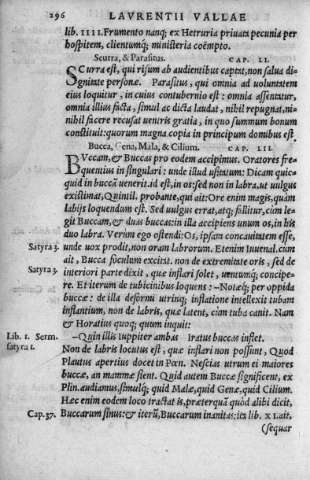 296 LAVRENTII VALLAE
lib. IIII. Frumento nanq; ex Hetruria priuata pecunia per
hospitem, clientumq; ministeria coëmpto.
Scurra, & Parasitus. CAP. LI.
SCurra est, qui risum ab audientibus captat, non salua di-
gnitate personæ. Parasitus, qui omnia ad uoluntatem
eius loquitur, in cuius contubernio est: omnia assentatur,
omnia illius facta, simul ac dicta laudat, nihil repugnat, ni-
hil facere recusat uentris gratia, in quo summum bonum
constituit: quorum magna copia in principum domibus est.
Bucca, Gena, Mala, & Cilium. CAP. LII.
BVccam, & Buccas pro eodem accipimus. Oratores fre-
quentius in singulari: unde illud usitatum: Dicam quic-
quid in buccã uenerit. id est, in os: sed non in labra, ut uulgus
existimat, Quintil. probante, qui ait: Ore enim magis, quàm
labijs loquendum est. Sed uulgus errat, atq; fallitur, cùm le-
git Buccam, & duas buccas: in illa accipiens unum os, in his
duo labra. Verùm ego ostendi: Os, ipsam concauitatem esse,
Satyra 3. unde uox prodit, non oram labrorum. Etenim Iuuenal. cum
ait, Bucca foculum excitat. non de extremitate oris, sed de
Satyra 3. interiori parte dixit, quæ inflari solet, uentumq; concipe-
re. Et iterum de tubicinibus loquens: –Notæq; per oppida
buccæ: de illa deformi utrinq; inflatione intellexit tubam
inflantium, non de labris, quæ latent, cùm tuba canit. Nam
& Horatius quoq; quum inquit:
Lib. 1. Serm. –Quin illis Iuppiter ambas Iratus buccas inflet.
satyra 1. Non de labris locutus est, quæ inflari non possunt, Quod
Plautus apertius docet in Pœn. Nescias utrum ei maiores
buccæ, an mammæ sient. Quid autem Buccæ significent, ex
Plin. audiamus, simulq; quid Malæ, quid Genæ, quid Cilium.
Hæc enim eodem loco tractat is, præterquã quod alibi dicit,
Cap. 37. Buccarum sinus: & iterũ, Buccarum inanitas: ex lib. X I. ait.
(sequar